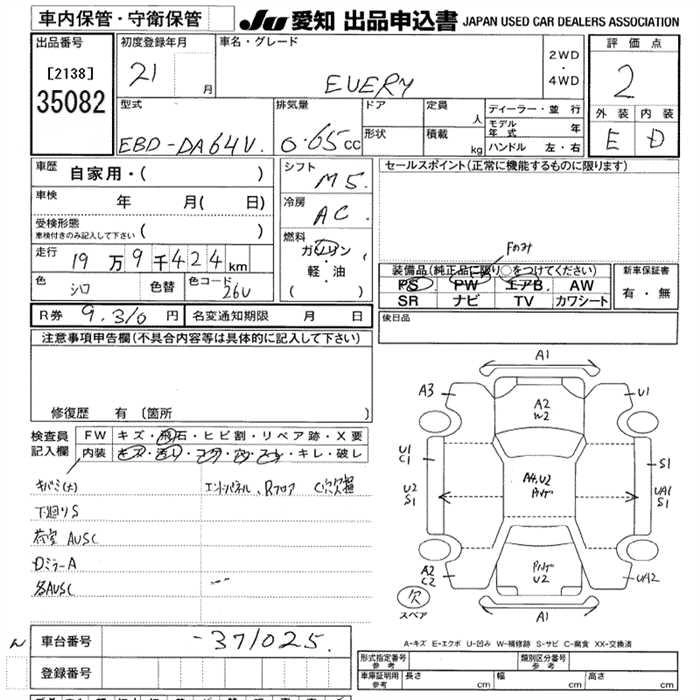 車内保管・守衛保管
JU 愛知 出品申込書 JAPAN USED CAR DEALERS ASSOCIATION
出品番号
[2138]
35082
初度登録年月
21 月
車名・グレード
EVERY
2WD
・
4WD
評価点
2
外装 内装
E D
型式
EBD-DA64V.
排気量
0.65cc
ドア
形状
定員 人
積載 kg
ディーラー・並行
モデル年式 年
ハンドル 左・右
車歴 自家用・( )
車検 年 月( 日)
受検形態
車検付きのみ記入して下さい ( )
走行 19万9千424km
色 シロ 色替 色コード 26U
シフト M5.
冷房 AC.
燃料
ガソリン
・
軽・油
( )
セールスポイント(正常に機能するものに限ります)
Fのみ
装備品(純正品に限り○をつけてください)
PS PW エアB. AW
SR ナビ TV カワシート
新車保証書
有・無
R券 9.310円 名変通知期限 月 日
後日品
注意事項申告欄(不具合内容等は具体的に記入して下さい)
修復歴 有 (箇所 )
検査員
記入欄
FW キズ・飛石・ヒビ割・リペア跡・X要
内装 キズ・汚レ・コゲ・穴・スレ・キレ・破レ
キバミ(大)
下廻りS
荷室 AUSC
DミラーA
各AUSC
エンドパネル、Rフロア C穴欠損
A1
A3
A2
W2
U1
U1
C1
S1
U2
S1
A4,U2
UA1
S1
A2
C2
U2
UA2
欠
スペア
A1
A-キズ E-エクボ U-凹み W-補修跡 S-サビ C-腐食 XX-交換済
車台番号 -371025.
登録番号
形式指定番号
参考
類別区分番号
参考
車庫証明用
参考
長さ cm 幅 cm 高さ cm